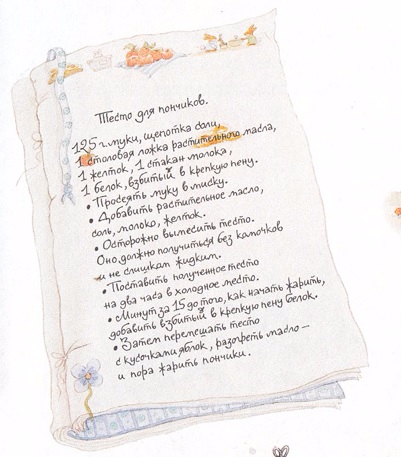 Тесто для пончиков.
125 г муки, щепотка соли,
1 столовая ложка растительного масла,
1 желток, 1 стакан молока,
1 белок, взбитый в крепкую пену.
• Просеять муку в миску.
• Добавить растительное масло,
соль, молоко, желток.
• Осторожно вымесить тесто.
Оно должно получиться без комочков
и не слишком жидким.
• Поставить полученное тесто
на два часа в холодное место.
• Минут за 15 до того, как начать жарить,
добавить взбитый в крепкую пену белок.
• Затем перемешать тесто
с кусочками яблок, разогреть масло –
и пора жарить пончики.